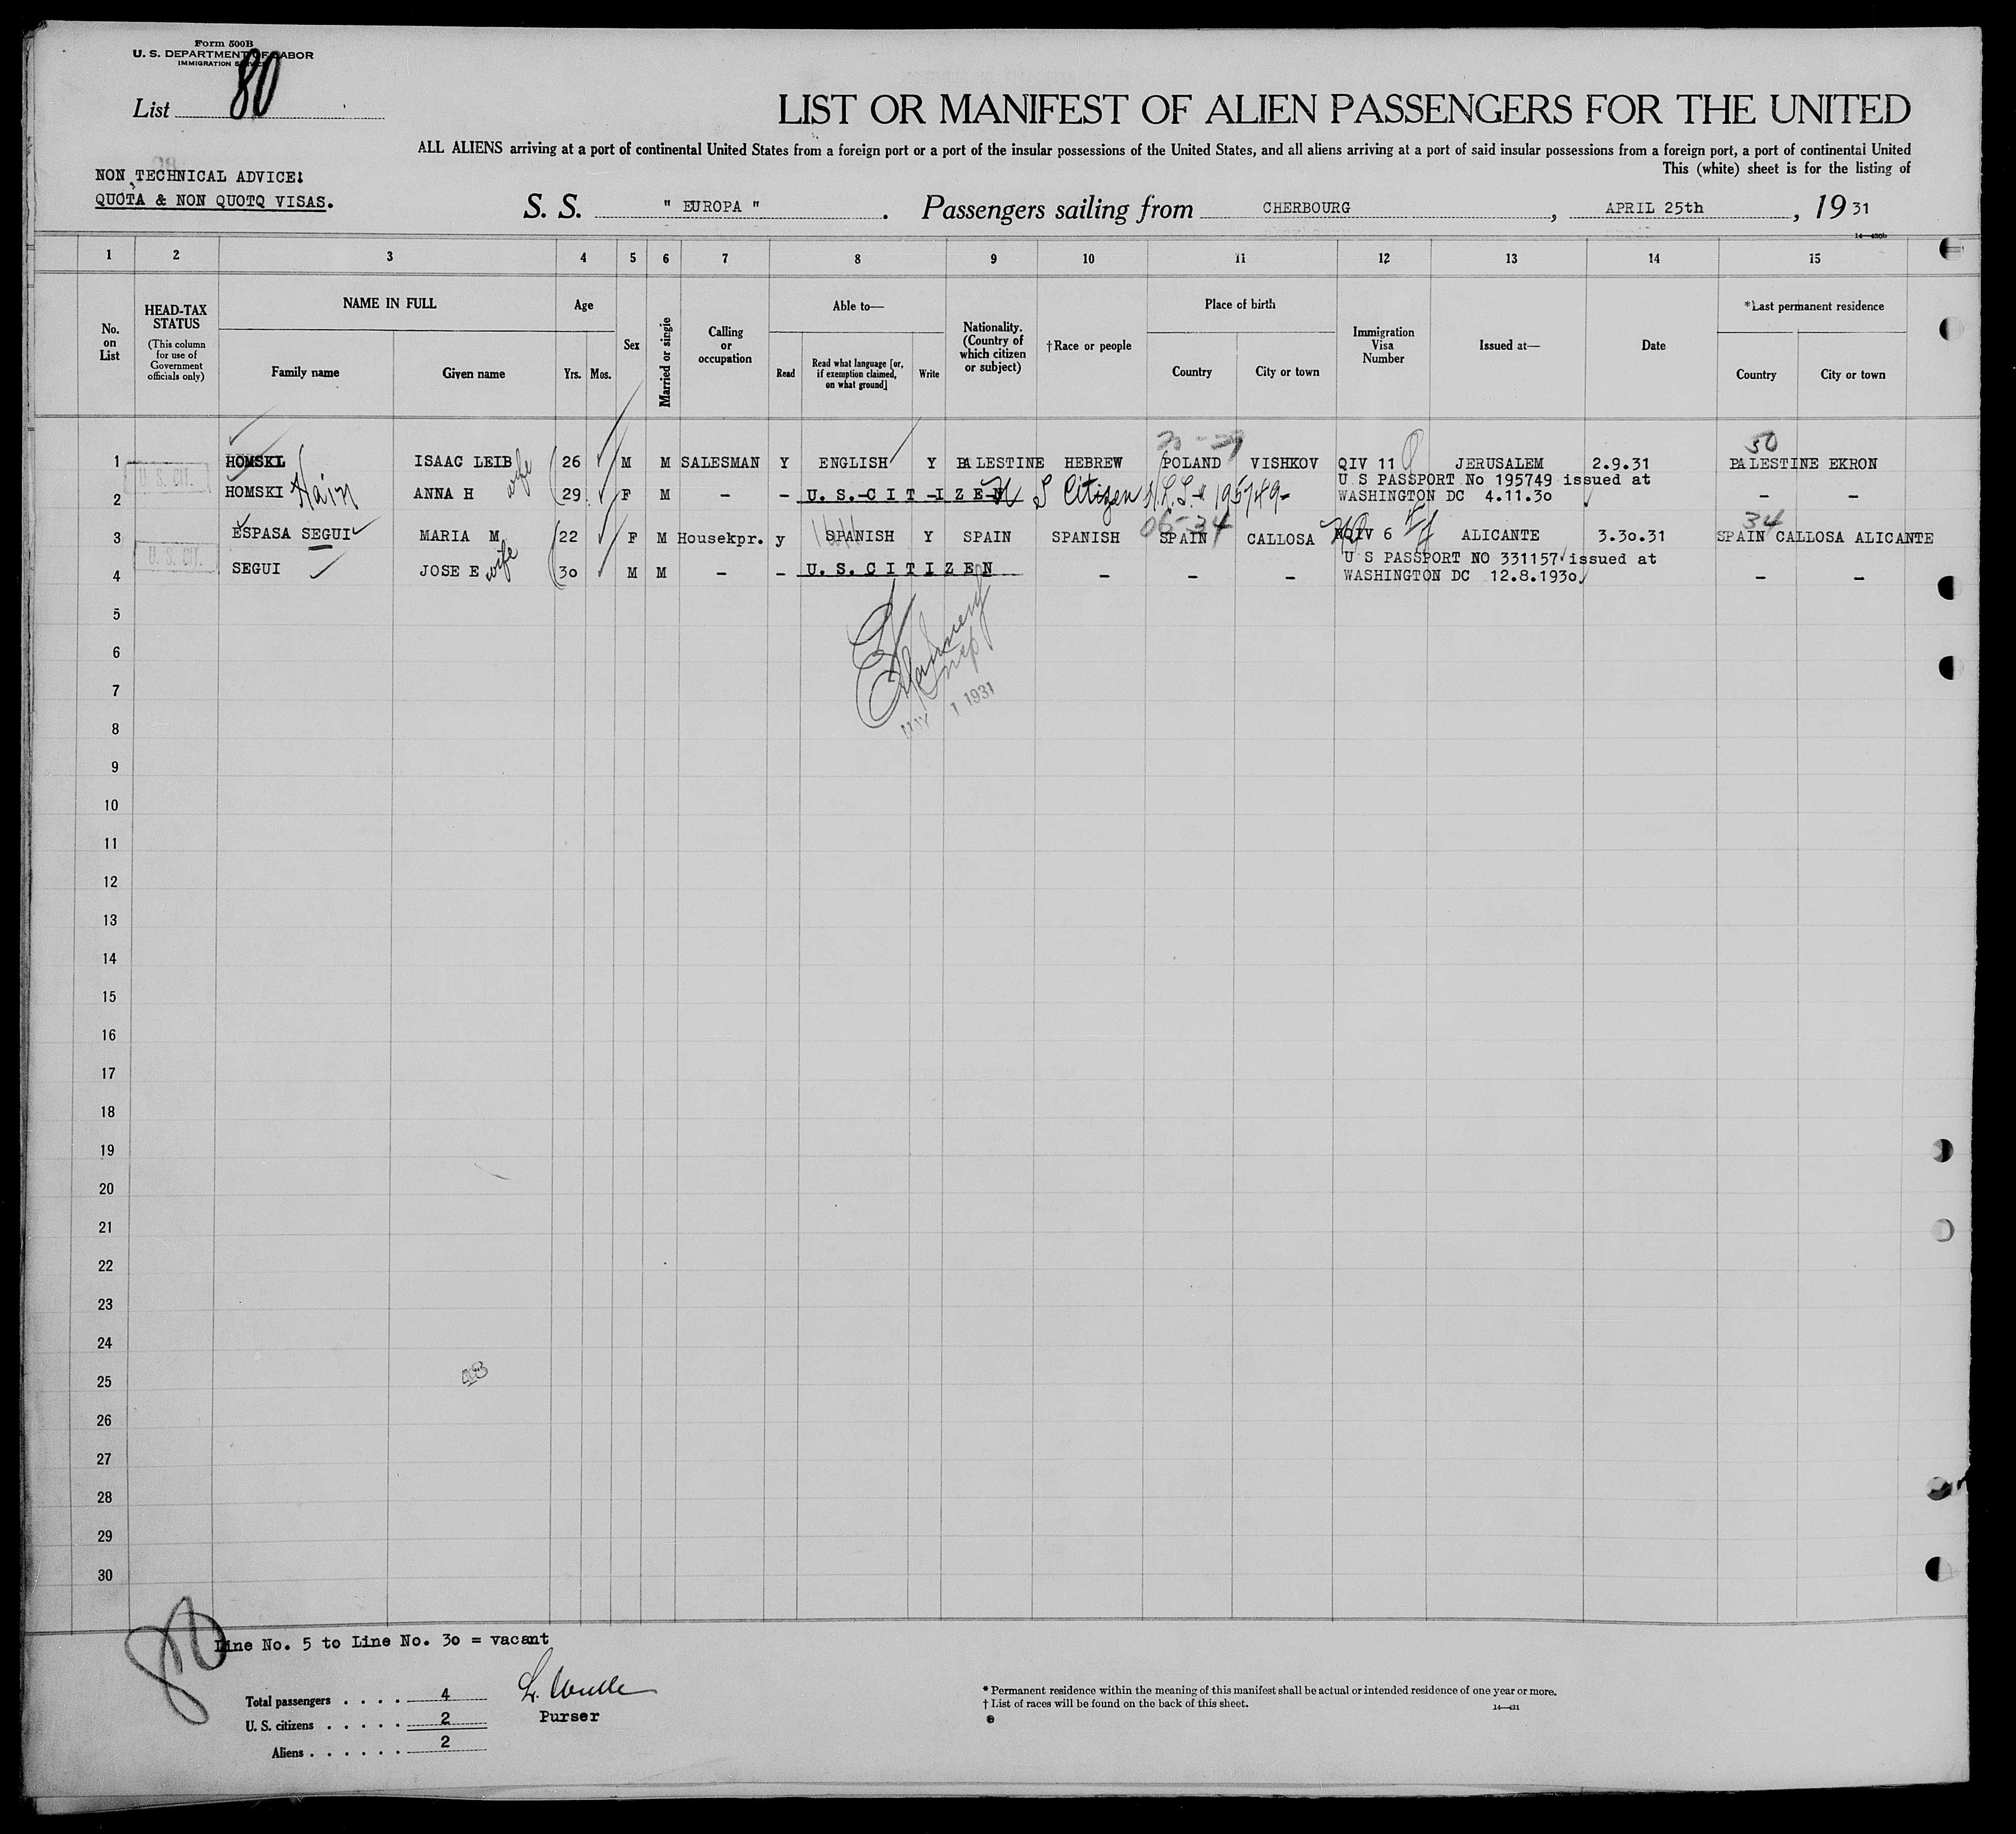 Form 500B
U. S. DEPARTMENT OF LABOR
IMMIGRATION SERVICE
List 80
LIST OR MANIFEST OF ALIEN PASSENGERS FOR THE UNITED
ALL ALIENS arriving at a port of continental United States from a foreign port or a port of the insular possessions of the United States, and all aliens arriving at a port of said insular possessions from a foreign port, a port of continental United
This (white) sheet is for the listing of
NON TECHNICAL ADVICE:
QUOTA & NON QUOTQ VISAS.
S. S. " EUROPA " . Passengers sailing from CHERBOURG , APRIL 25th , 19 31
1 2 3 4 5 6 7 8 9 10 11 12 13 14 15
No. on List
HEAD-TAX STATUS
(This column for use of Government officials only)
NAME IN FULL
Family name
Given name
Age
Yrs. Mos.
Sex
Married or single
Calling or occupation
Able to—
Read
Read what language [or, if exemption claimed, on what ground]
Write
Nationality. (Country of which citizen or subject)
†Race or people
Place of birth
Country
City or town
Immigration Visa Number
Issued at—
Date
*Last permanent residence
Country
City or town
30
1 HOMSKI ISAAC LEIB 26 M M SALESMAN Y ENGLISH Y PALESTINE HEBREW POLAND VISHKOV QIV 11 JERUSALEM 2.9.31 PALESTINE EKRON
U. S. CIT.
wife
U S PASSPORT No 195749 issued at
2 HOMSKI Hain ANNA H 29 F M – – U. S. C I T I Z E N U S Citizen 195749- WASHINGTON DC 4.11.30 – –
06-34 34
3 ESPASA SEGUI MARIA M 22 F M Housekpr. y SPANISH Y SPAIN SPANISH SPAIN CALLOSA NQIV 6 ALICANTE 3.30.31 SPAIN CALLOSA ALICANTE
U. S. CIT.
wife
U S PASSPORT NO 331157 issued at
4 SEGUI JOSE E 30 M M – – U. S. C I T I Z E N – – – WASHINGTON DC 12.8.1930 – –
5
6
7
MAY 1 1931
8
9
10
11
12
13
14
15
16
17
18
19
20
21
22
23
24
25
26
27
28
29
30
80
Line No. 5 to Line No. 30 = vacant
Total passengers . . . . 4
U. S. citizens . . . . . 2
Aliens . . . . . . 2
Purser
* Permanent residence within the meaning of this manifest shall be actual or intended residence of one year or more.
† List of races will be found on the back of this sheet.